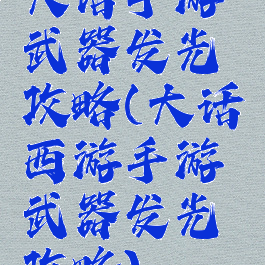 大话手游
武器发光
攻略(大话
西游手游
武器发光
攻略)